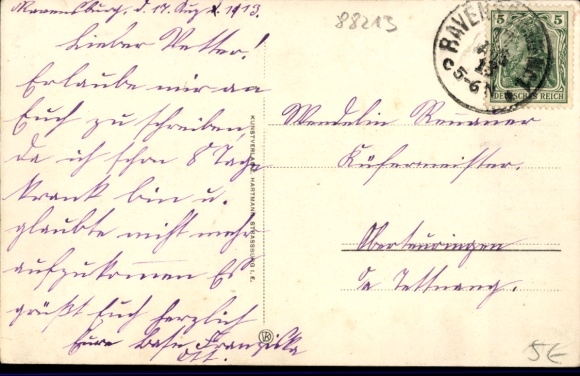 Ravensburg, d. 17. Aug. 1913.
88213
Lieber Vetter!
Erlaube mir an
Euch zu schreiben,
da ich schon 8 Tage
krank bin u.
glaubte nicht mehr
aufzukommen Es
grüßt Euch herzlich
Eure Base Franziska
Ott.
KUNSTVERLAG J. HARTMANN, STRASSBURG i. E.
RAVENSBURG
5-6 N
5 5
DEUTSCHES REICH
Wendelin
Küfermeister.
Oberteuringen
Oa Tettnang.
5€